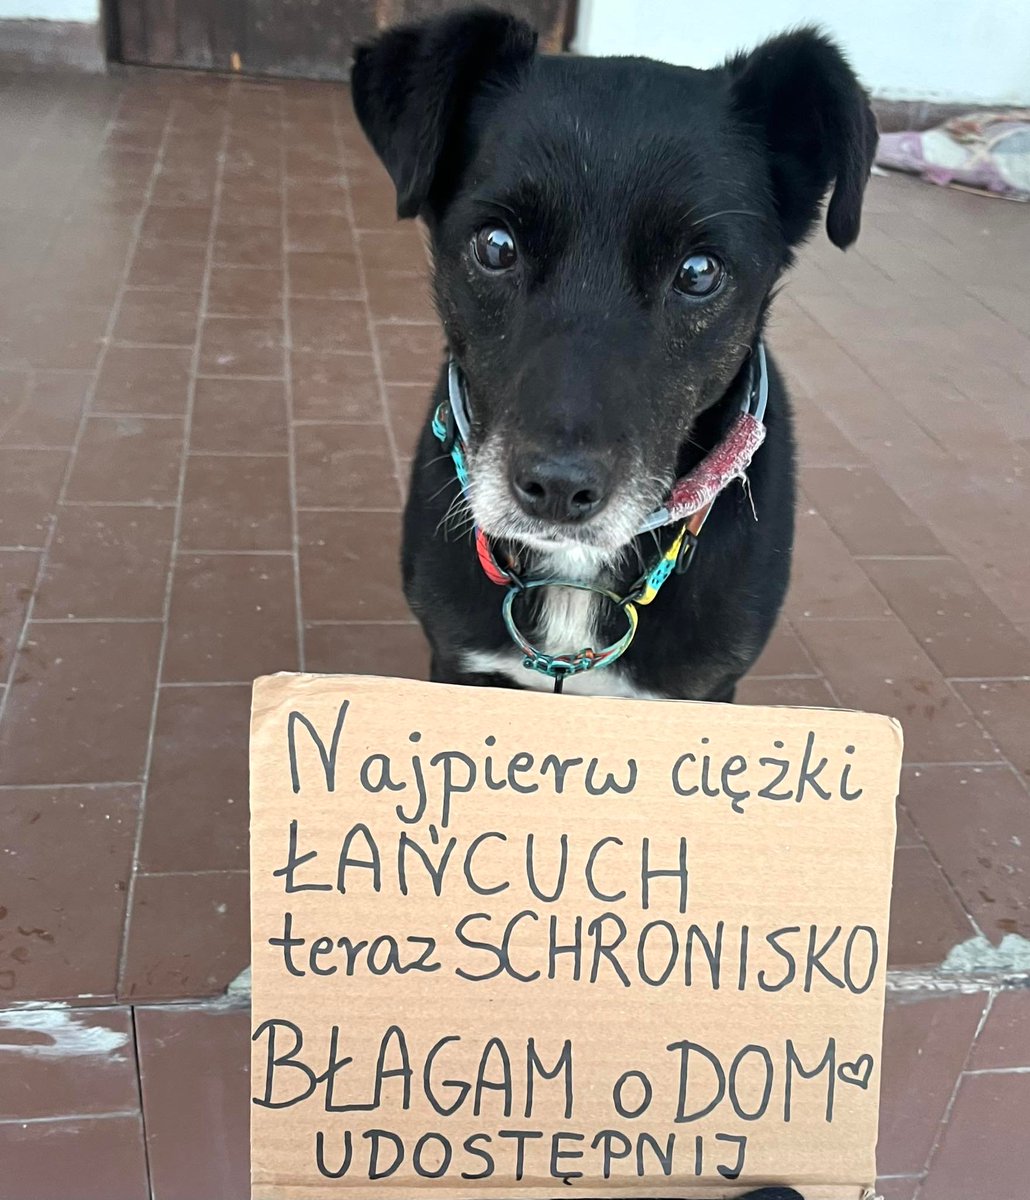 Najpierw ciężki
ŁAŃCUCH
teraz SCHRONISKO
BŁAGAM o DOM♡
UDOSTĘPNIJ